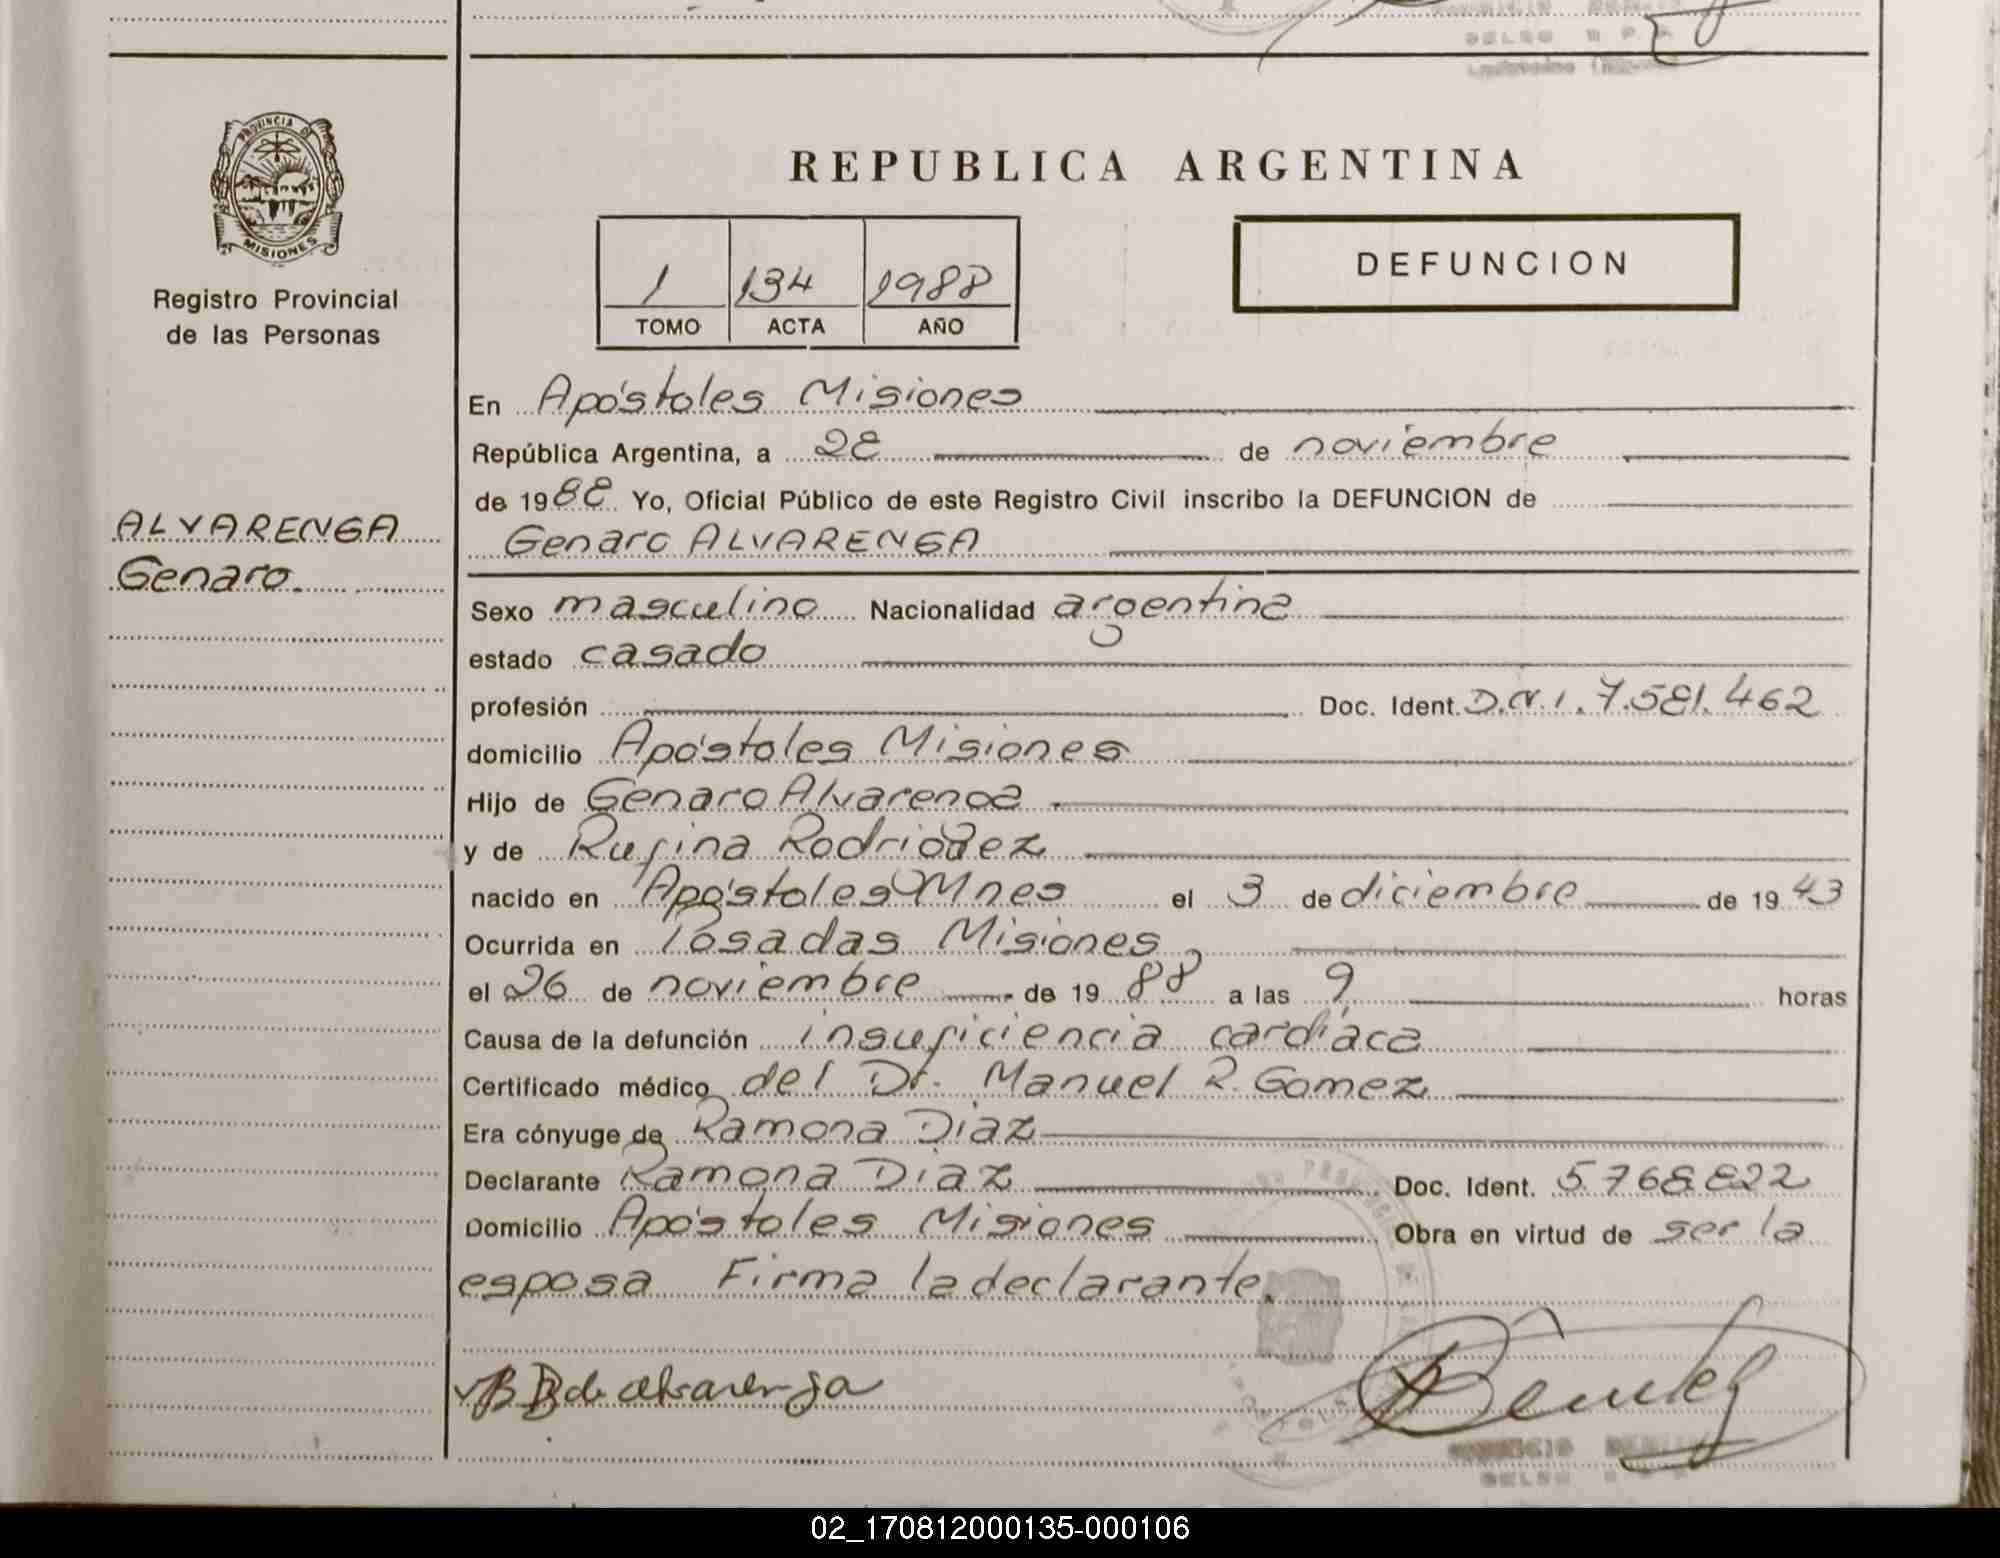 REPUBLICA ARGENTINA
PROVINCIA DE
MISIONES
Registro Provincial
de las Personas
1 134 1988
TOMO ACTA AÑO
DEFUNCION
ALVARENGA
Genaro
En Apóstoles Misiones
República Argentina, a 28 de noviembre
de 1988 Yo, Oficial Público de este Registro Civil inscribo la DEFUNCION de
Genaro ALVARENGA
Sexo masculino Nacionalidad argentina
estado casado
profesión Doc. Ident. D.N.I. 7.581.462
domicilio Apóstoles Misiones
Hijo de Genaro Alvarenga
y de Rufina Rodriguez
nacido en Apóstoles Mnes el 3 de diciembre de 1943
Ocurrida en Posadas Misiones
el 26 de noviembre de 1988 a las 9 horas
Causa de la defunción insuficiencia cardíaca
Certificado médico del Dr. Manuel R. Gomez
Era cónyuge de Ramona Diaz
Declarante Ramona Diaz Doc. Ident. 5.768.822
Domicilio Apóstoles Misiones Obra en virtud de ser la
esposa Firma la declarante.
de alvarenga
02_170812000135-000106